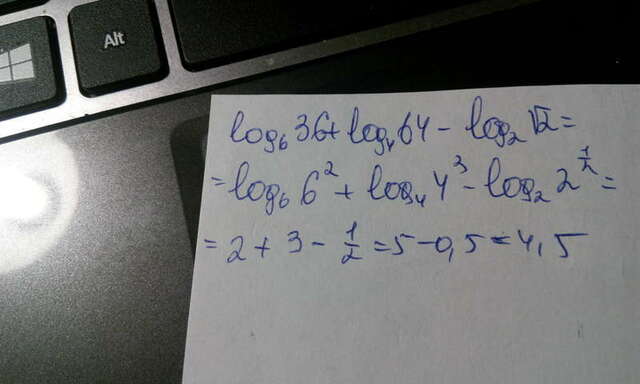 Alt
log₆ 36 + log₄ 64 - log₂ √2 =
= log₆ 6² + log₄ 4³ - log₂ 2^½ =
= 2 + 3 - ½ = 5 - 0,5 = 4,5